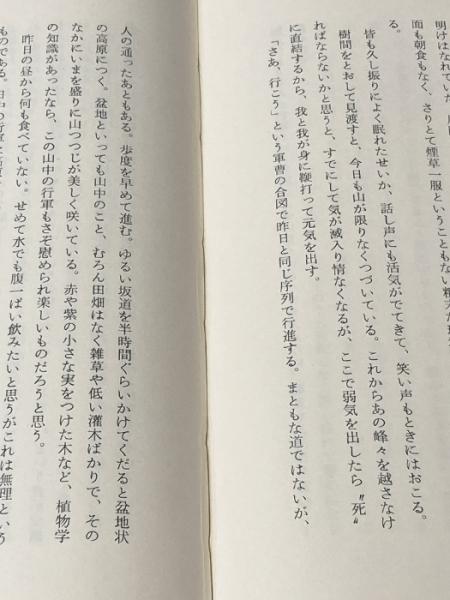 明けはなれていた
面も朝食もなく、さりとて煙草一服ということもない精
る。
皆も久し振りによく眠れたせいか、話し声にも活気がでてきて、笑い声もときにはおこる。
樹間をとおして見渡すと、今日も山が限りなくつづいている。これからあの峰々を越さなけ
ればならないかと思うと、すでにして気が滅入り情なくなるが、ここで弱気を出したら〝死〟
に直結するから、我と我が身に鞭打って元気を出す。
「さあ、行こう」という軍曹の合図で昨日と同じ序列で行進する。まともな道ではないが、
人の通ったあともある。歩度を早めて進む。ゆるい坂道を半時間ぐらいかけてくだると盆地状
の高原につく。盆地といっても山中のこと、むろん田畑はなく雑草や低い灌木ばかりで、その
なかにいまを盛りに山つつじが美しく咲いている。赤や紫の小さな実をつけた木など、植物学
の知識があったなら、この山中の行軍もさぞ慰められ楽しいものだろうと思う。
昨日の昼から何も食べていない。せめて水でも腹一ぱい飲みたいと思うがこれは無理という
ものである。